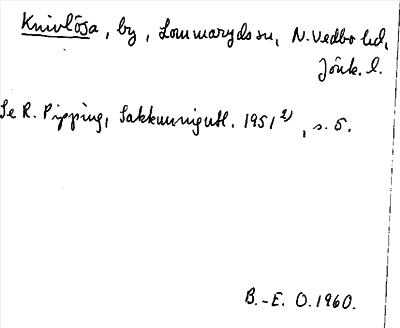 Knivlösa, by, Lommaryds sn, N. Vedbo hd,
Jönk. l.
Se R. Pipping, Sakkunnigutl. 1951 2), s. 5.
B.-E. O. 1960.